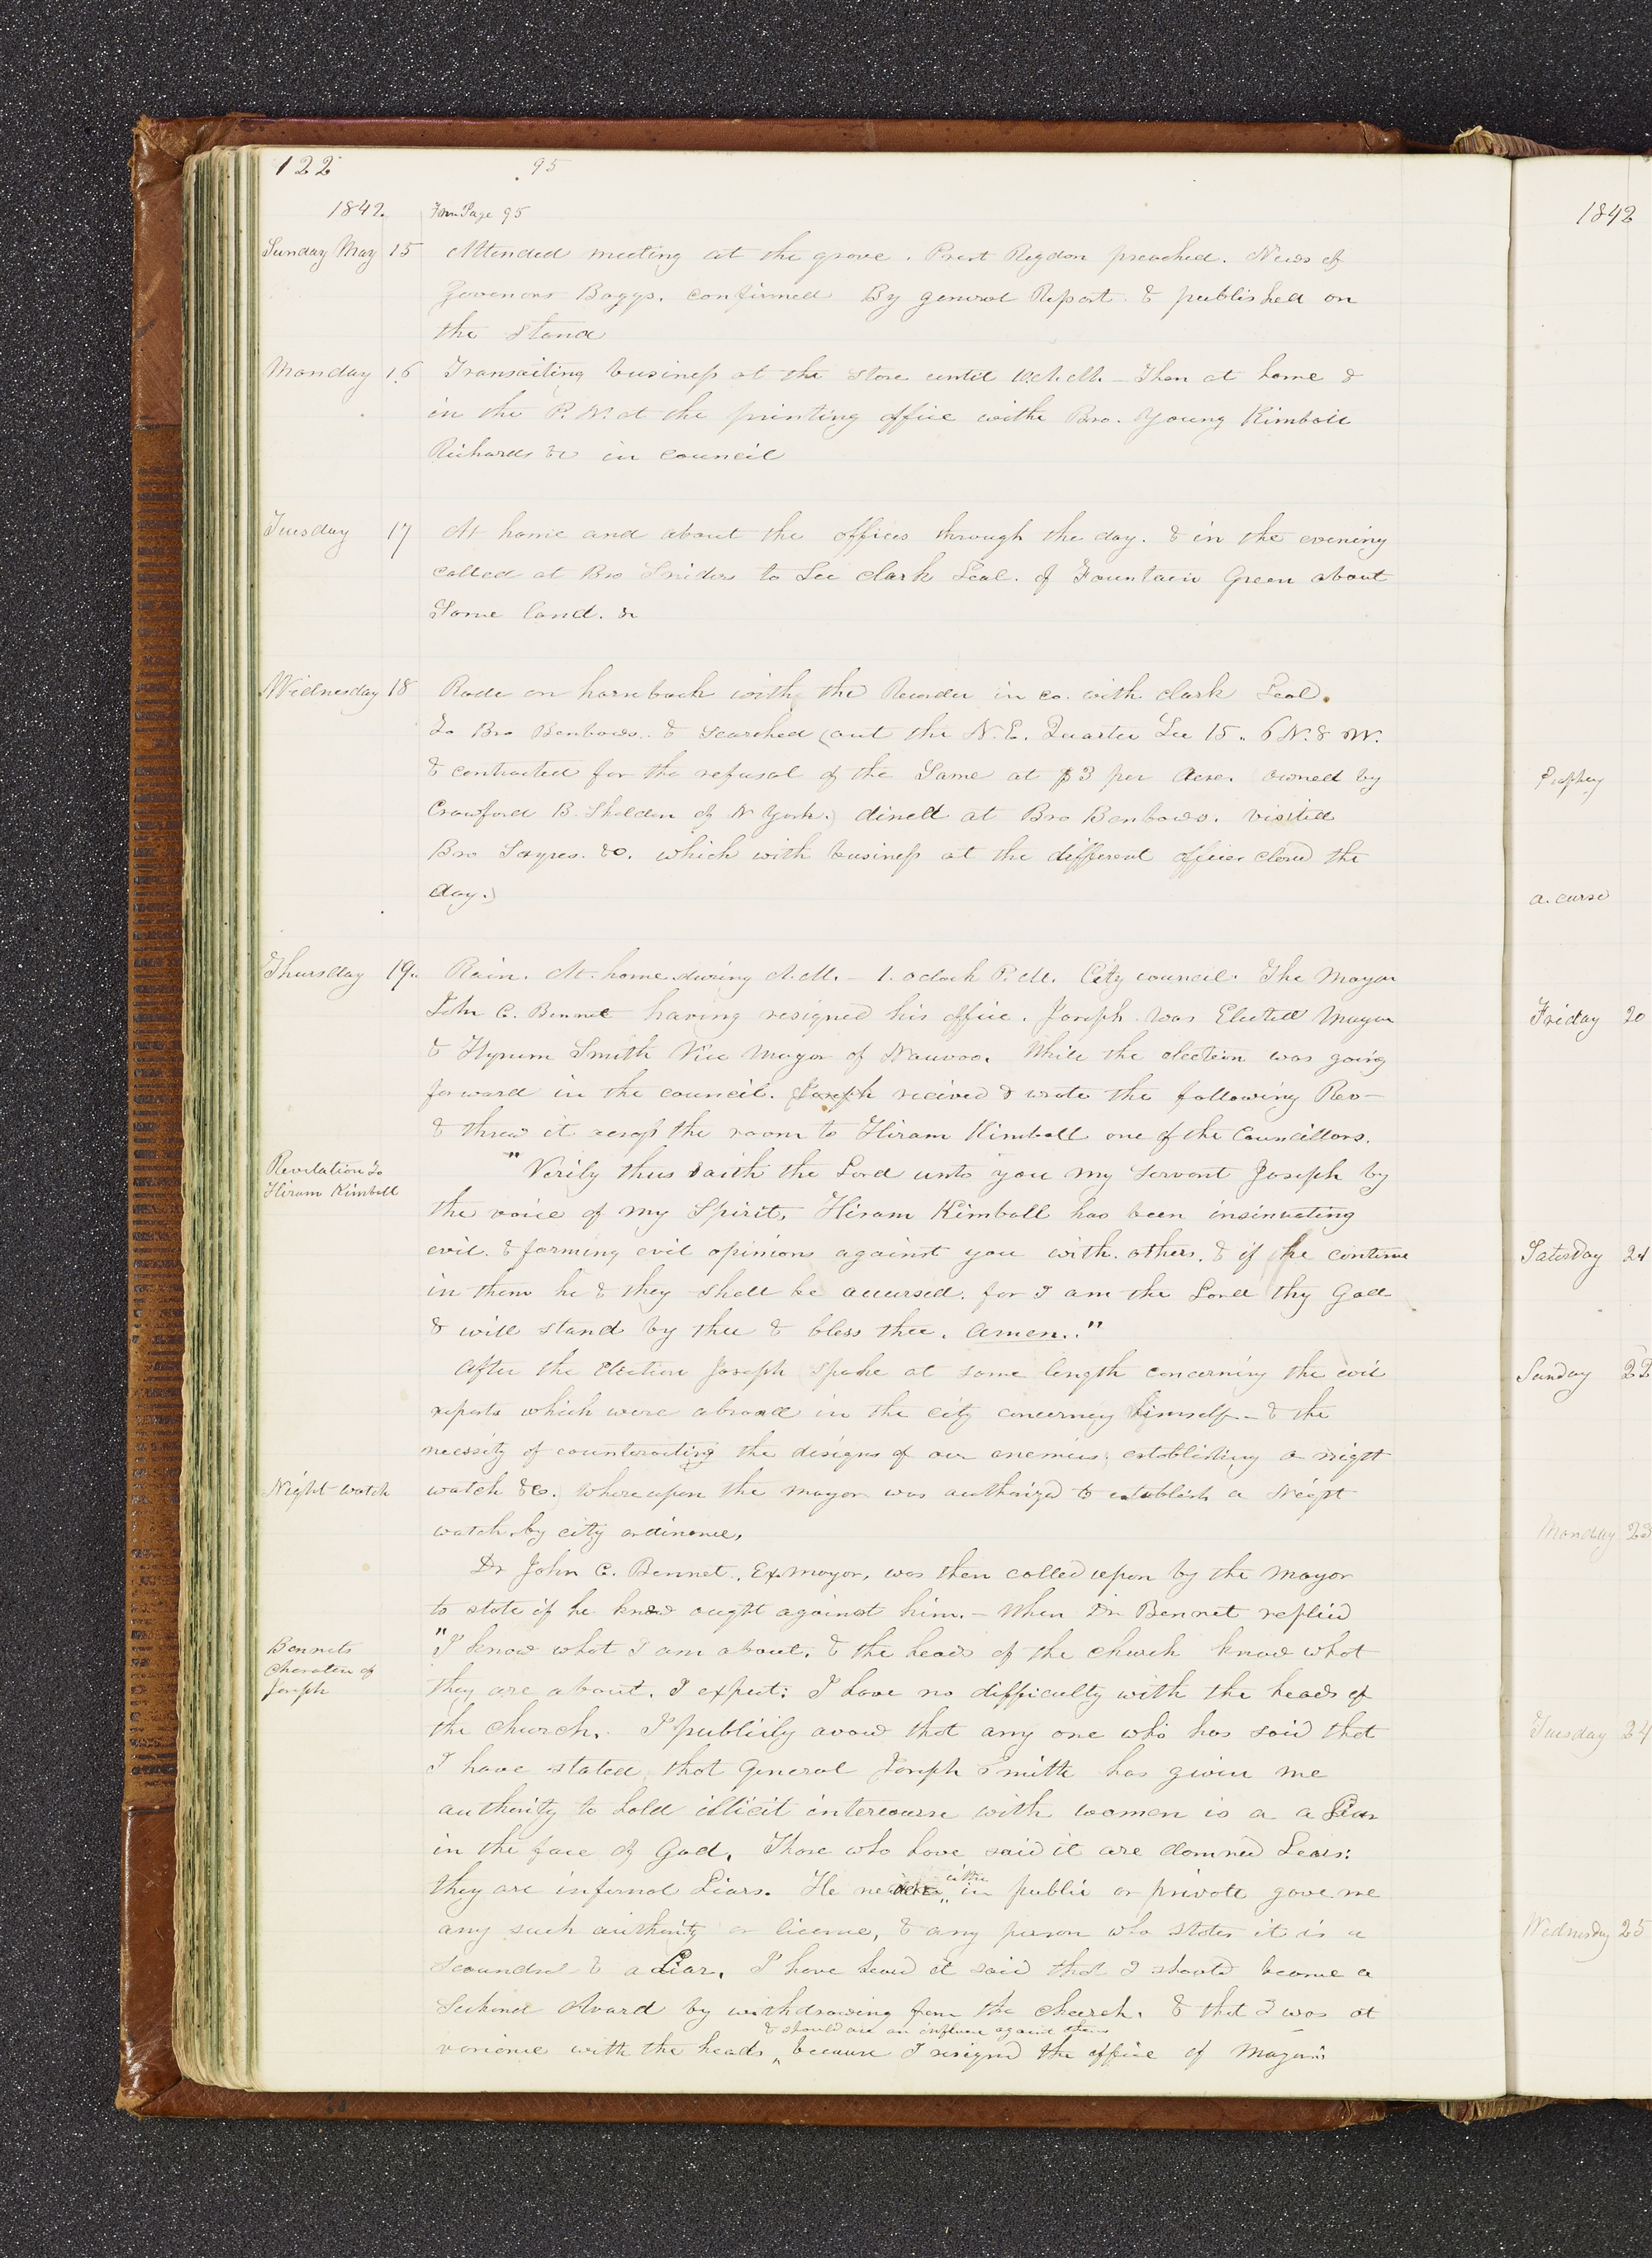 122
95
1842.
From Page 95
Sunday May 15 Attended meeting at the grove. Prest Rigdon preached. News of
Govenors Boggs. confirmed By general Report. & published on
the stand
Monday 16 Transacting business at the store until 10. A.M. – Then at home &
in the P. M. at the printing office withe Bro. Young Kimball
Richards &c in council
Tuesday 17 At home and about the offices through the day. & in the evening
called at Bro Sniders to See clark Leal. of Fountain Green about
Some land. &c
Wednesday 18 Rode on horseback with the Recorder in co. with clark Leal.
To Bro Benbows. & searched (out the N. E. Quarter Sec 15. 6 N. 8 W.
& contracted for the refusal of the Same at $3 per Acre. owned by
Crawford B. Sheldon of N York.) dined at Bro Benbows. visited
Bro Sayres. &c. which with business at the different offices closed the
day.)
Thursday 19. Rain. At home during A.M. – 1. oclock P. M. City council. The Mayor
John C. Bennet having resigned his office. Joseph was Elected Mayor
& Hyrum Smith Vice Mayor of Nauvoo. While the election was going
forward in the council. Joseph recived & wrote the following Rev–
& threw it across the room to Hiram Kimball one of the Councillors.
Revelation to
Hiram Kimball
"Verily thus saith the Lord unto you my servant Joseph by
the voice of my Spirit, Hiram Kimball has been insinuating
evil. & forming evil opinions against you with. others. & if he continue
in them he & they shall be accursed. for I am the Lord thy God
& will stand by thee & bless thee. Amen.."
After the Election Joseph spoke at some length concerning the evil
reports which were abroad in the city concerning himself – & the
necessity of counteracting the designs of our enemies; establishing a night
Night-watch
watch &c. whereupon the mayor was authorized to establish a Night
watch by city ordinance,
Dr John C. Bennet, Exmayor, was then called upon by the mayor
to state if he knew ought against him. – When Dr Bennet replied
Bennets
Charater of
Joseph
"I know what I am about. & the heads of the church know what
they are about. I expect: I have no difficulty with the heads of
the church. I publicly avow that any one who has said that
I have stated that General Joseph Smith has given me
authority to hold illicit intercourse with women is a a Liar
in the face of God, Those who have said it are damned Liars:
they are infernal Liars. He never, either in public or private gave me
any such authority or license, & any person who states it is a
Scoundrel & a Liar. I have heard it said that I should become a
Second Avard by withdrawing from the church. & that I was at
varience with the heads & should use an influence against them because I resigned the office of Mayor.
1842
Prophcy
a. curse
Friday 20
Saturday 21
Sunday 22
Monday 23
Tuesday 24
Wednesday 25